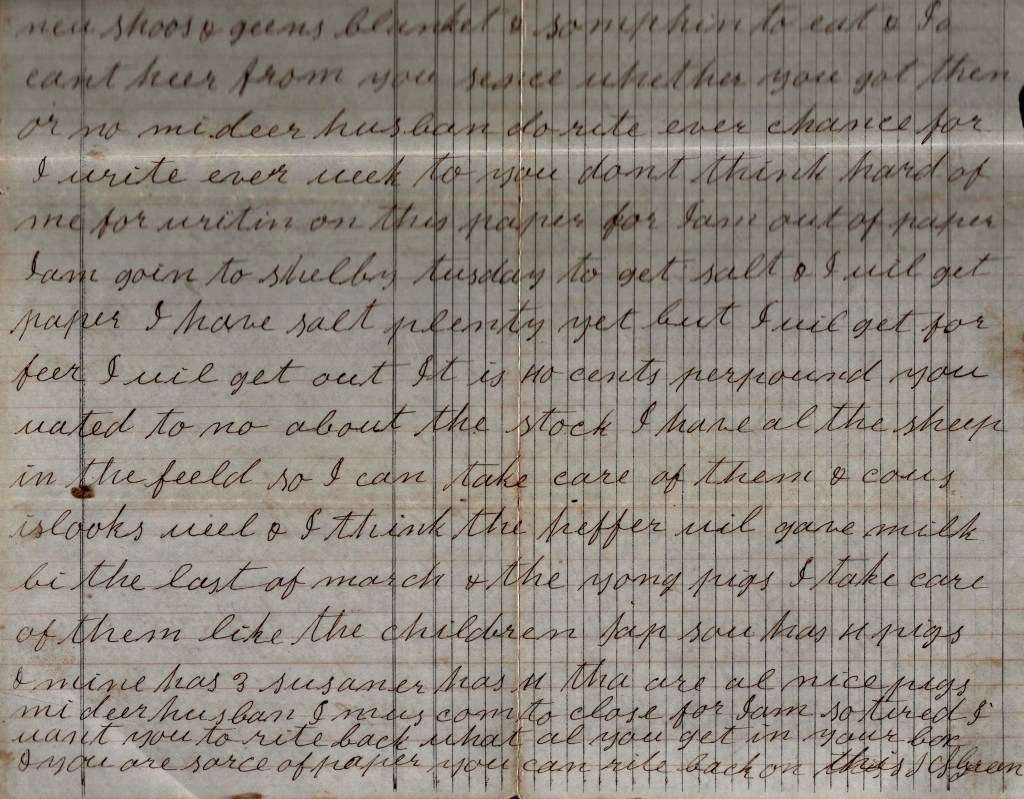 new shoos & geens blanket & somphin to eat & I
cant heer from you sence whether you got them
or no mi deer husban do rite ever chance for
I write ever week to you dont think hard of
me for writin on this paper for I am out of paper
I am goin to shelby tusday to get salt & I wil get
paper I have salt plenty yet but I wil get for
feer I wil get out It is 40 cents per pound you
wated to no about the stock I have al the sheep
in the feeld so I can take care of them & cows
is looks well & I think the heffer wil gave milk
bi the last of march & the yong pigs I take care
of them like the children jap sow has 4 pigs
& mine has 3 susaner has 4 tha are al nice pigs
mi deer husban I mus com to close for I am so tired I
want you to rite back what al you get in your box
& you are sarce of paper you can rite back on this